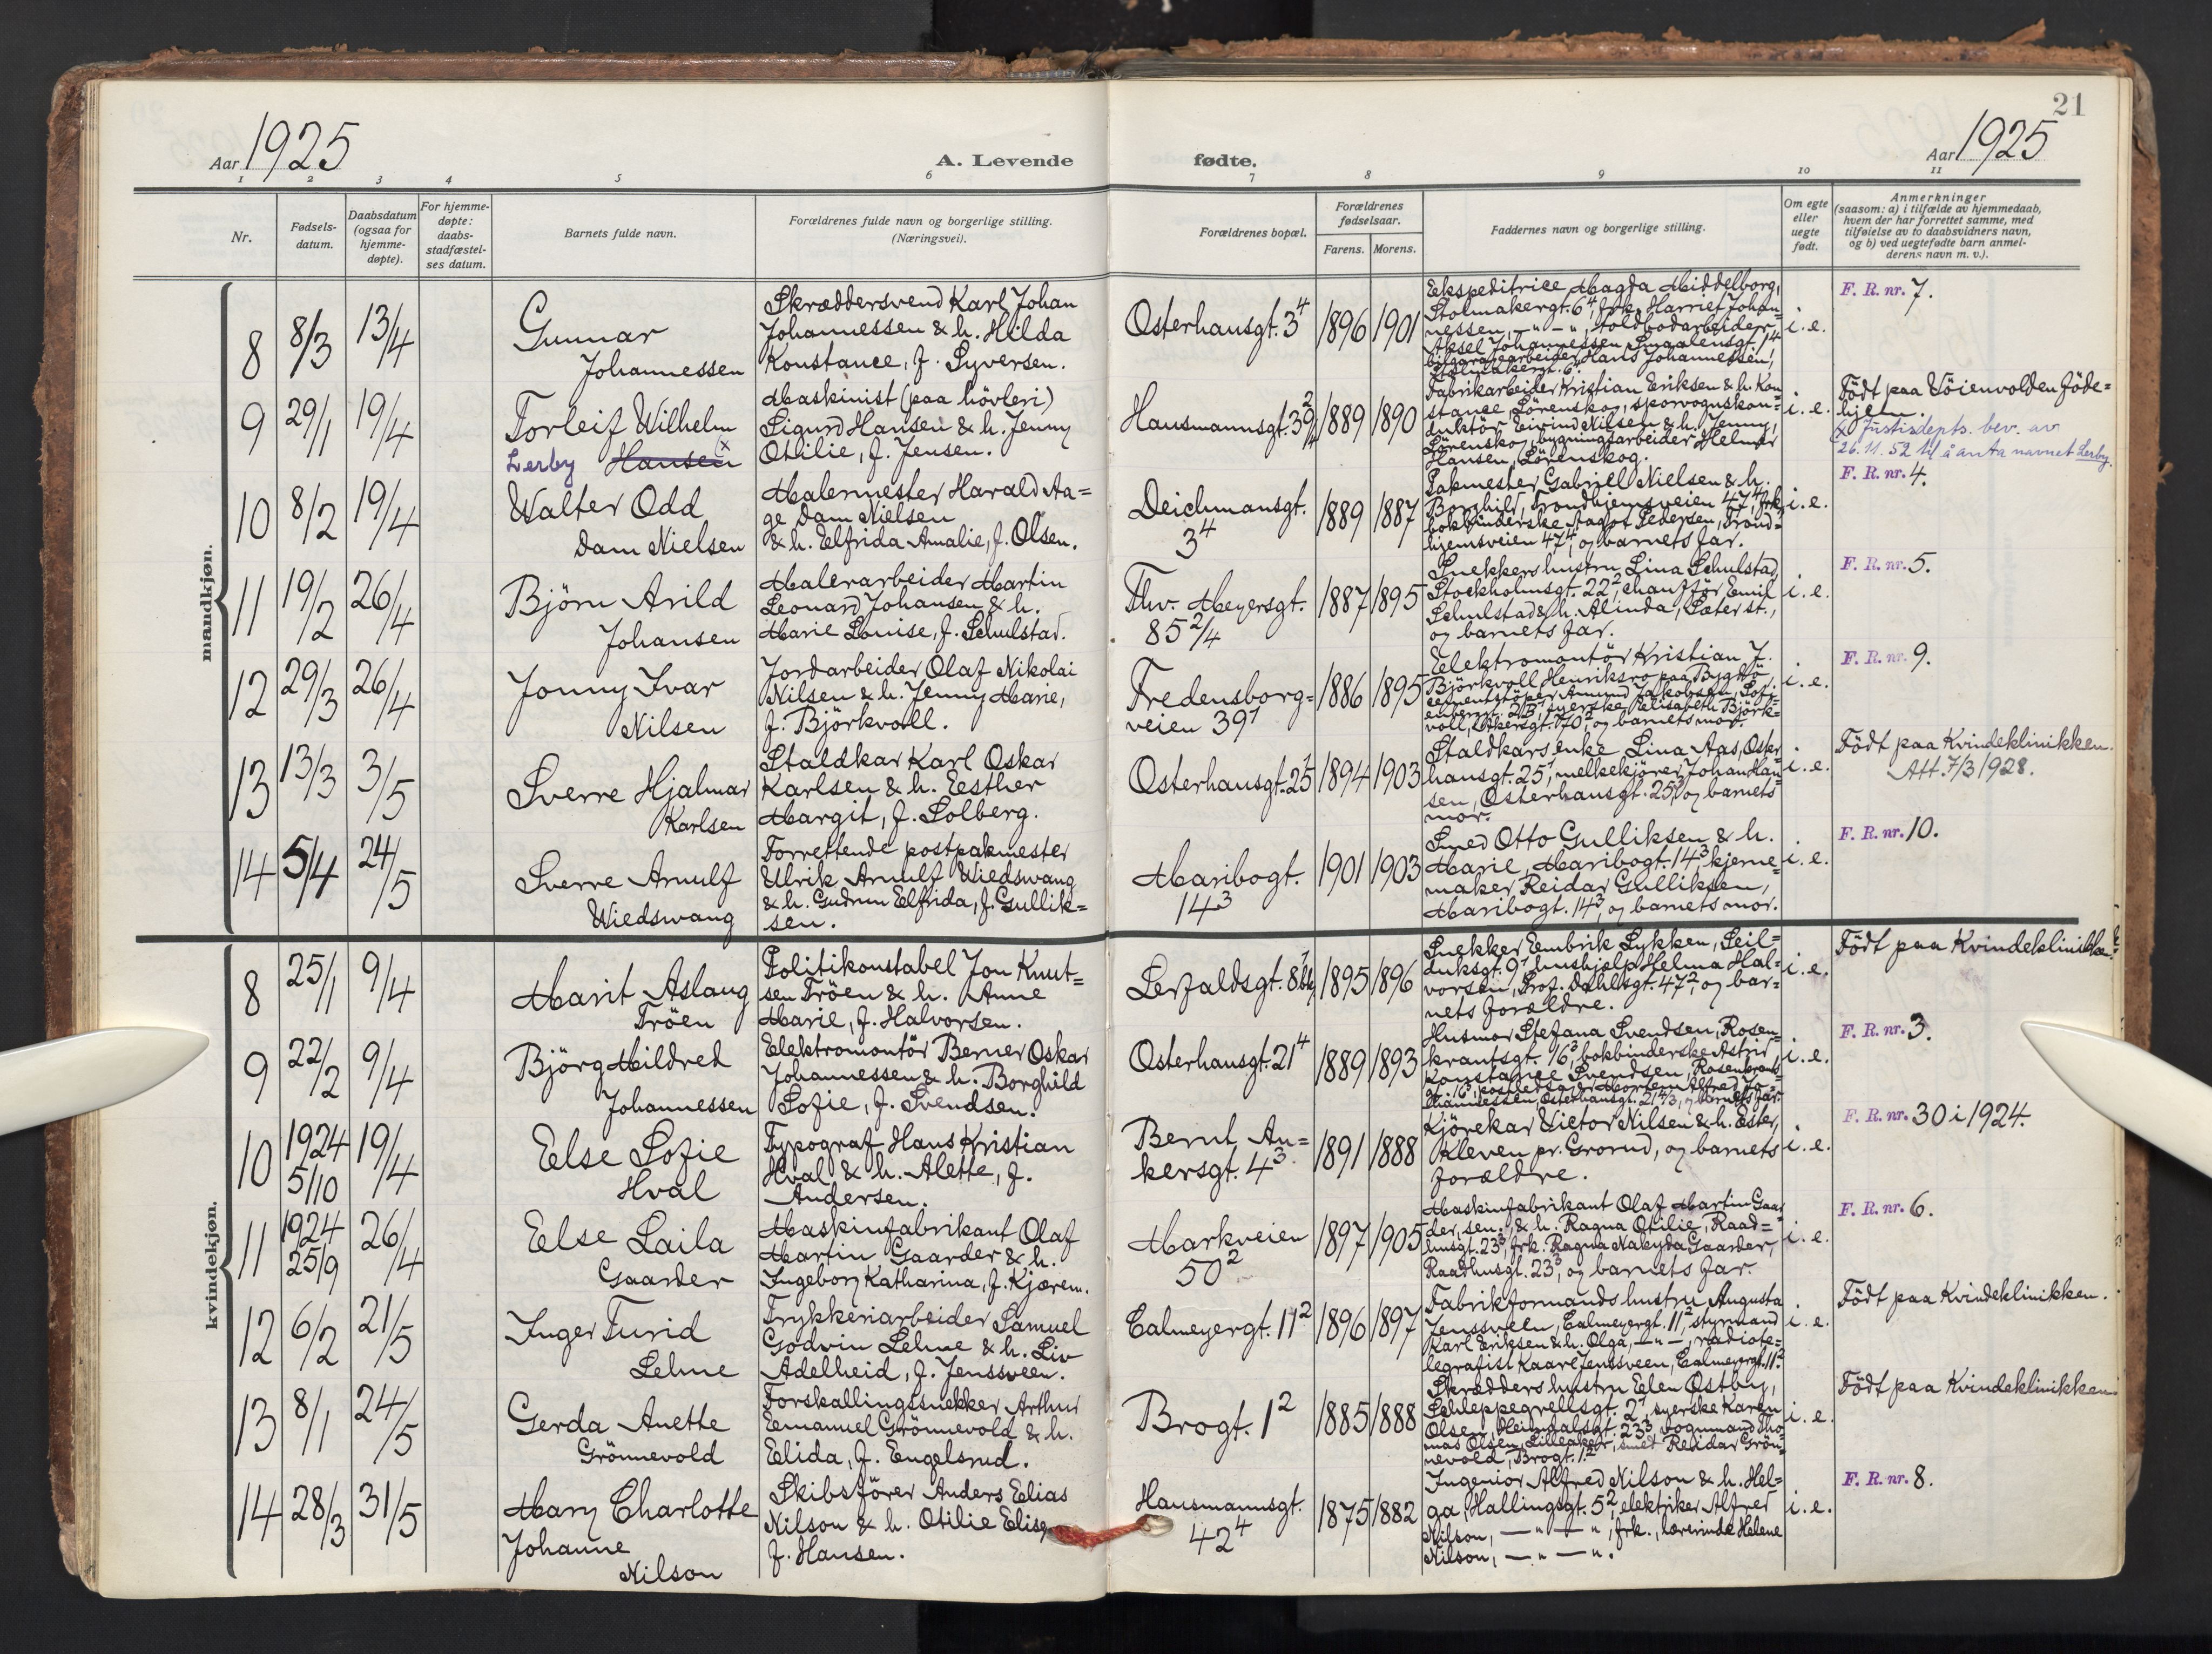 21
Aar 1925
A. Levende
fødte.
Aar 1925
1 2 3 4 5 6 7 8 9 10 11
Nr.
Fødsels-
datum.
Daabsdatum
(ogsaa for
hjemme-
døpte).
For hjemme-
døpte:
daabs-
stadfæstel-
ses datum.
Barnets fulde navn.
Forældrenes fulde navn og borgerlige stilling.
(Næringsvei).
Forældrenes bopæl.
Forældrenes
fødselsaar.
Farens. Morens.
Faddernes navn og borgerlige stilling.
Om egte
eller
uegte
født.
Anmerkninger
(saasom: a) i tilfælde av hjemmedaab,
hvem der har forrettet samme, med
tilføielse av to daabsvidners navn,
og b) ved uegtefødte barn anmel-
derens navn m. v.).
mandkjøn.
8 8/3 13/4
Gunnar
Johannessen
Skræddersvend Karl Johan
Johannessen & h. Hilda
Konstance, f. Syversen.
Osterhausgt. 3 4
1896 1901
Ekspeditrice Magda Middelborg,
Stolmakergt. 6 4, frk. Harriet Johan=
nessen, — " — ", toldbodarbeider
Aksel Johannessen Smaalensgt. 14
bilgaragearbeider Hans Johannessen,
Stolmakergt. 6.
i. e.
F. R. nr. 7.
9 29/1 19/4
Torleif Wilhelm
Lerby Hansen x
Maskinist (paa hövleri)
Sigurd Hansen & h. Jenny
Othilie, f. Jensen.
Hausmannsgt. 39 2/4
1889 1890
Fabrikarbeider Kristian Eriksen & h. Kon
stance, Lörenskog, sporvognskon=
duktör Eivind Nielsen & h. Jenny,
Lörenskog, bygningsarbeider Helmer
Hansen, Lörenskog.
i. e.
Födt paa Töienvolden föde=
hjem.
x Justisdepts. bev. av
26.11.52 til å anta navnet Lerby.
10 8/2 19/4
Walter Odd
Dam Nielsen
Malermester Harald Aa=
ge Dam Nielsen
& h. Elfrida Amalie, f. Olsen.
Deichmansgt.
3 4
1889 1887
Pakmester Gabriel Nielsen & h.
Borghild, Trondhjemsveien 47 4, frk.
bokbinderske Aagot Pedersen, Trond=
hjemsveien 47 4, og barnets far.
i. e.
F. R. nr. 4.
11 19/2 26/4
Björn Arild
Johansen
Malerarbeider Martin
Leonard Johansen & h.
Marie Louise, f. Schulstad.
Thv. Meyersgt.
85 2/4
1887 1895
Snekkers hustru Lina Schulstad
Stockholmsgt. 22 2, chauffør Emil
Schulstad & h. Alinda, Sæter st.,
og barnets far.
i. e.
F. R. nr. 5.
12 29/3 26/4
Jonny Ivar
Nilsen
Jordarbeider Olaf Nikolai
Nilsen & h. Jenny Marie,
f. Björkvoll.
Fredensborg=
veien 39 1
1886 1895
Elektromontör Kristian J.
Björkvoll Henriksro paa Bygdö
sementstöper Amund Jakobsen, Sofi=
enberggt. 21 3, syerske Elisabeth Björk=
voll, Akersgt. 70 2, og barnets mor.
i. e.
F. R. nr. 9.
13 13/3 3/5
Sverre Hjalmar
Karlsen
Staldkar Karl Oskar
Karlsen & h. Esther
Margit, f. Solberg.
Osterhausgt. 25 1
1894 1903
Staldkars enke Lina Aas, Oster
hausgt. 25 1, melkekjører Johan Han=
sen, Osterhausgt. 25 1, og barnets
mor.
i. e.
Födt paa Kvindeklinikken.
Att. 7/3 1928.
14 5/4 24/5
Sverre Arnulf
Wiedswang
Forrettende postpakmester
Ulrik Arnulf Wiedswang
& h. Gudrun Elfrida, f. Gullik=
sen.
Maribogt.
14 3
1901 1903
Smed Otto Gulliksen & h.
Marie, Maribogt. 14 3, kjerne=
maker Reidar Gulliksen,
Maribogt. 14 3, og barnets mor.
i. e.
F. R. nr. 10.
kvindekjøn.
8 25/1 9/4
Marit Aslaug
Tröen
Politikonstabel Jon Knut=
sen Tröen & h. Anne
Marie, f. Halvorsen.
Lerfaldsgt. 8
1895 1896
Snekker Embrik Lykken, Seil=
duksgt. 9 1, hushjelp Helma Hal=
vorsen, Prof. Dahlsgt. 47 2, og bar=
nets forældre.
i. e.
Födt paa Kvindeklinikken.
9 22/2 9/4
Björg Mildred
Johannessen
Elektromontör Berner Oskar
Johannessen & h. Borghild
Sofie, f. Svendsen.
Osterhausgt. 21 4
1889 1893
Husmor Stefana Svendsen, Rosen=
krantsgt. 16 3, bokbinderske Astrid
Konstance Svendsen, Rosenkrants=
gt. 16 3, Morten Alfred Jo=
hannessen, Osterhausgt. 21 4/3, og barnets far.
i. e.
F. R. nr. 3.
10 1924 5/10 19/4
Else Sofie
Hval
Typograf Hans Kristian
Hval & h. Alette, f.
Andersen.
Bernt An=
kersgt. 4 3.
1891 1888
Kjörekar Victor Nilsen & h. Ester,
Kleven pr. Grorud, og barnets
forældre.
i. e.
F. R. nr. 30 i 1924.
11 1924 25/9 26/4
Else Laila
Gaarder
Maskinfabrikant Olaf
Martin Gaarder & h.
Ingeborg Katharina, f. Kjærem.
Markveien
50 2
1897 1905
Maskinfabrikant Olaf Martin Gaar
der, sen. & h. Ragna Otilie, Raad=
husgt. 23 3, frk. Ragna Gaarder,
Raadhusgt. 23 3, og barnets far.
i. e.
F. R. nr. 6.
12 6/2 21/5
Inger Turid
Lehne
Trykkeriarbeider Samuel
Godvin Lehne & h. Liv
Adelheid, f. Jenssveen.
Calmeyergt. 11 2
1896 1897
Fabrikformands hustru Augusta
Jenssveen, Calmeyergt. 11 2, styrmand
Karl Eriksen & h. Olga, — " —, radiote=
legrafist Kaare Jenssveen, Calmeyergt. 11 2.
i. e.
Födt paa Kvindeklinikken.
13 8/1 24/5
Gerda Anette
Grönnevold
Forskallingssnekker Arthur
Emanuel Grönnevold & h.
Elida, f. Engelsrud.
Brogt. 1 2
1885 1888
Skrædders hustru Elen Östby,
Schleppegrellsgt. 2 1, syerske Karen
Olsen, Heimdalsgt. 23 3, vognmand Tho=
mas Olsen, Lilleaker, smed Reidar Grön=
nevold, Brogt. 1 2.
i. e.
Födt paa Kvindeklinikken.
14 28/3 31/5
Mary Charlotte
Johanne
Nilson
Skibsförer Anders Elias
Nilson & h. Otilie Elise,
f. Hansen.
Hausmannsgt.
42 4
1875 1882
Ingeniör Alfred Nilson & h. Hel=
ga, Hallingsgt. 5 2, elektriker Alfred
Nilson, — " — ", frk., lærerinde Helene
Nilson, — " — ".
i. e.
F. R. nr. 8.